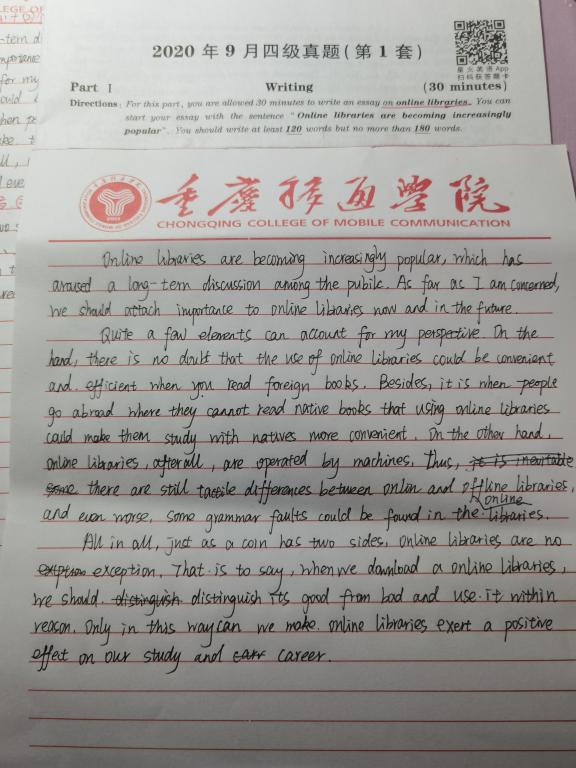 2020 年 9 月四级真题(第 1 套)
星火英语App
扫码获答题卡
Part I Writing (30 minutes)
Directions: For this part, you are allowed 30 minutes to write an essay on online libraries. You can
start your essay with the sentence "Online libraries are becoming increasingly
popular". You should write at least 120 words but no more than 180 words.
重庆移通学院
CHONGQING COLLEGE OF MOBILE COMMUNICATION
Online libraries are becoming increasingly popular, which has
aroused a long-term discussion among the pubilc. As far as I am concerned,
we should attach importance to online libraries now and in the future.
Quite a few elements can account for my perspective. On the
hand, there is no doubt that the use of online libraries could be convenient
and efficient when you read foreign books. Besides, it is when people
go abroad where they cannot read native books that using online libraries
could make them study with natives more convenient. On the other hand,
online libraries, after all, are operated by machines. Thus, it is inevitable
some there are still tactile differences between onlin and offline libraries,
and even worse, some grammar faults could be found in the online libraries.
All in all, just as a coin has two sides, online libraries are no
exception. That is to say, when we download a online libraries,
we should distinguish distinguish its good from bad and use it within
reason. Only in this way can we make online libraries exert a positive
effect on our study and carr career.